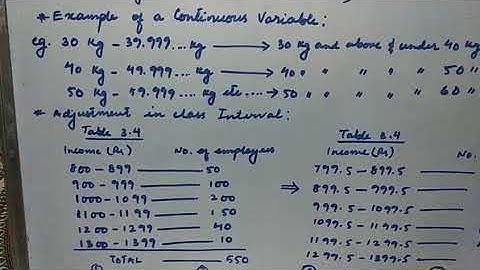 * Example of a Continuous Variable:
eg. 30 Kg - 39.999.... kg → 30 kg and above & under 40 kg
40 Kg - 49.999.... kg → 40 " " " " " 50 "
50 Kg - 59.999.... kg etc → 50 " " " " " 60 "
* Adjustment in class Interval:
Table 3.4 Table 3.4
Income (Rs) No. of employees Income (Rs) No.
800 - 899 — 50 799.5 - 899.5 —
900 - 999 — 100 ⇒ 899.5 - 999.5 —
1000 - 1099 — 200 999.5 - 1099.5 —
1100 - 1199 — 150 1099.5 - 1199.5 —
1200 - 1299 — 40 1199.5 - 1299.5 —
1300 - 1399 — 10 1299.5 - 1399.5 —
TOTAL — 550